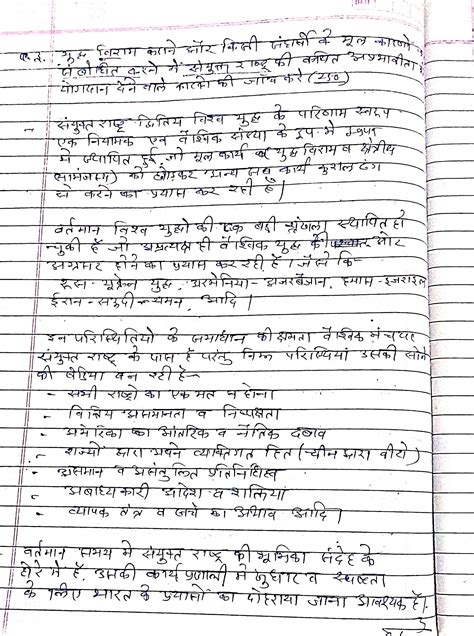 प्र.2. युद्ध विराम कराने और किसी संघर्ष के मूल कारणो
संबोधित करने में संयुक्त राष्ट्र की कथित अप्रभाविता
योगदान देने वाले कारकों की जाँच करे (250)
- संयुक्त राष्ट्र द्वितिय विश्व युद्ध के परिणाम स्वरूप
एक नियामक एवं वैश्विक संस्था के रूप में 1945
में स्थापित हुई जो मूल कार्य युद्ध विराम व क्षेत्रीय
सामंजस्य) को छोड़कर अन्य सब कार्य कुशल ढंग
से करने का प्रयास कर रही है।
वर्तमान विश्व युद्धो की एक बड़ी श्रृंखला स्थापित हो
चुकी है जो अप्रत्यक्ष ही वैश्विक युद्ध की ओर
अग्रसर होने का प्रयास कर रही है। जैसे कि-
रूस-यूक्रेन युद्ध, अरमेनिया-अजरबैजान, हमास-इजराइल
ईरान-सऊदी-यमन, आदि।
इन परिस्थितियो के समाधान की क्षमता वैश्विक मंच पर
संयुक्त राष्ट्र के पास है परंतु निम्न परिस्थियां उसकी सोने
की बेडिया बन रही है-
- सभी राष्ट्रो का एक मत न होना
- वित्तिय असमानता व निष्पक्षता
- अमेरिका का आंतरिक व नैतिक दबाव
- राज्यो द्वारा अपने व्यक्तिगत हित (चीन द्वारा वीटो)
- असमान व असंतुलित प्रतिनिधित्व
- अबाध्यकारी आदेश व शक्तियां
- व्यापक तंत्र व ढांचे का अभाव आदि।
- वर्तमान समय मे संयुक्त राष्ट्र की भूमिका संदेह के
घेरे में है, उसकी कार्य प्रणाली मे सुधार व स्पष्टता
के लिए भारत के प्रयासों का दोहराया जाना आवश्यक है।